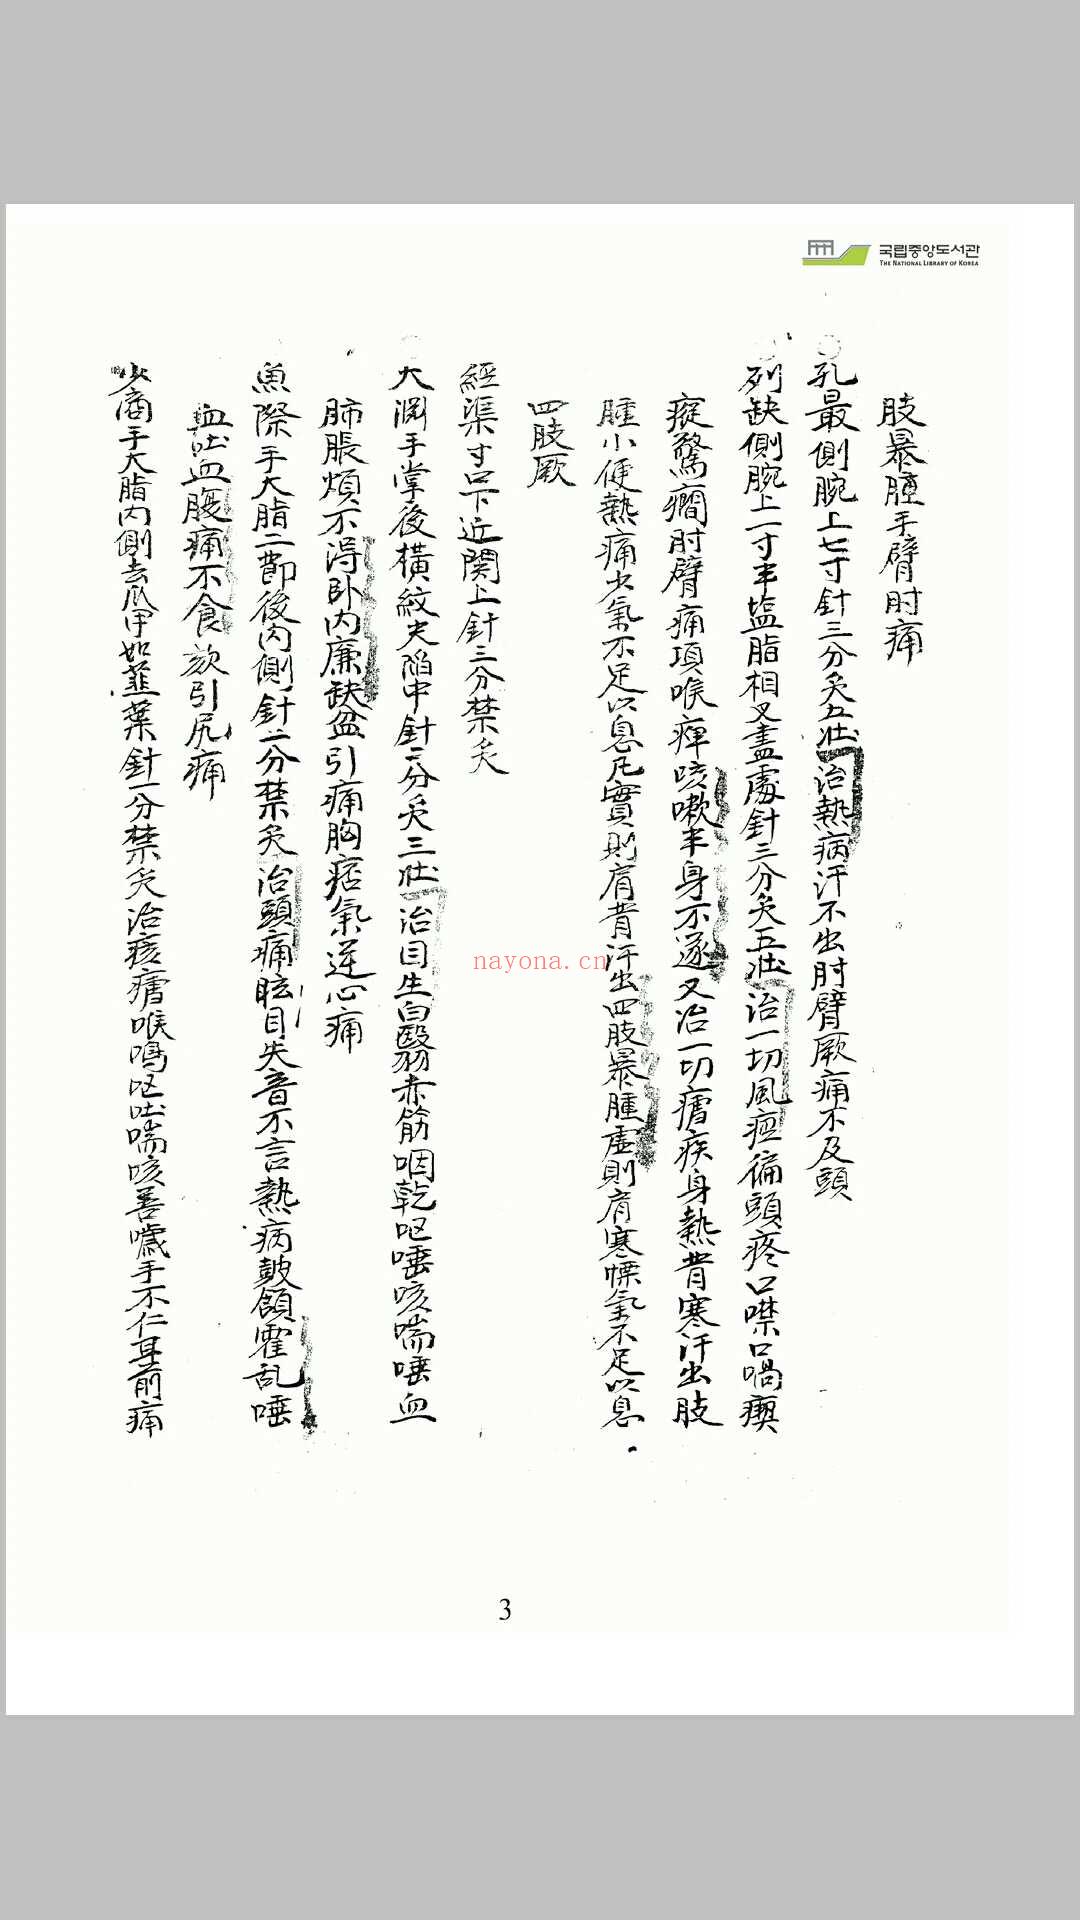 국립중앙도서관
THE NATIONAL LIBRARY OF KOREA
肢暴腫手臂肘痛
孔最側腕上七寸針三分灸五壯治熱病汗不出肘臂厥痛不及頭
列缺側腕上一寸半塩脂相叉盡處針三分灸五壯治一切風疸偏頭疼口噤口喎瘈
瘲驚癎肘臂痛項喉痺咳嗽半身不遂又治一切瘧疾身熱背寒汗出肢
腫小便熱痛少氣不足以息凡實則肩背汗出四肢暴腫虛則肩寒慄氣不足以息
四肢厥
經渠寸口下近関上針三分禁灸
大渊手掌後橫紋尖陷中針二分灸三壯治目生白翳赤筋咽乾呕唾咳喘唾血
肺脹煩不淂卧內廉缺盆引痛胸痞氣逆心痛
魚際手大脂二節後內側針二分禁灸治頭痛眩目失音不言熱病皷頷霍乱唾
血吐血腹痛不食欬引尻痛
少商手大脂內側去爪甲如韮葉針一分禁灸治痎瘧喉鳴呕吐喘咳善噦手不仁耳前痛
nayona.cn
3